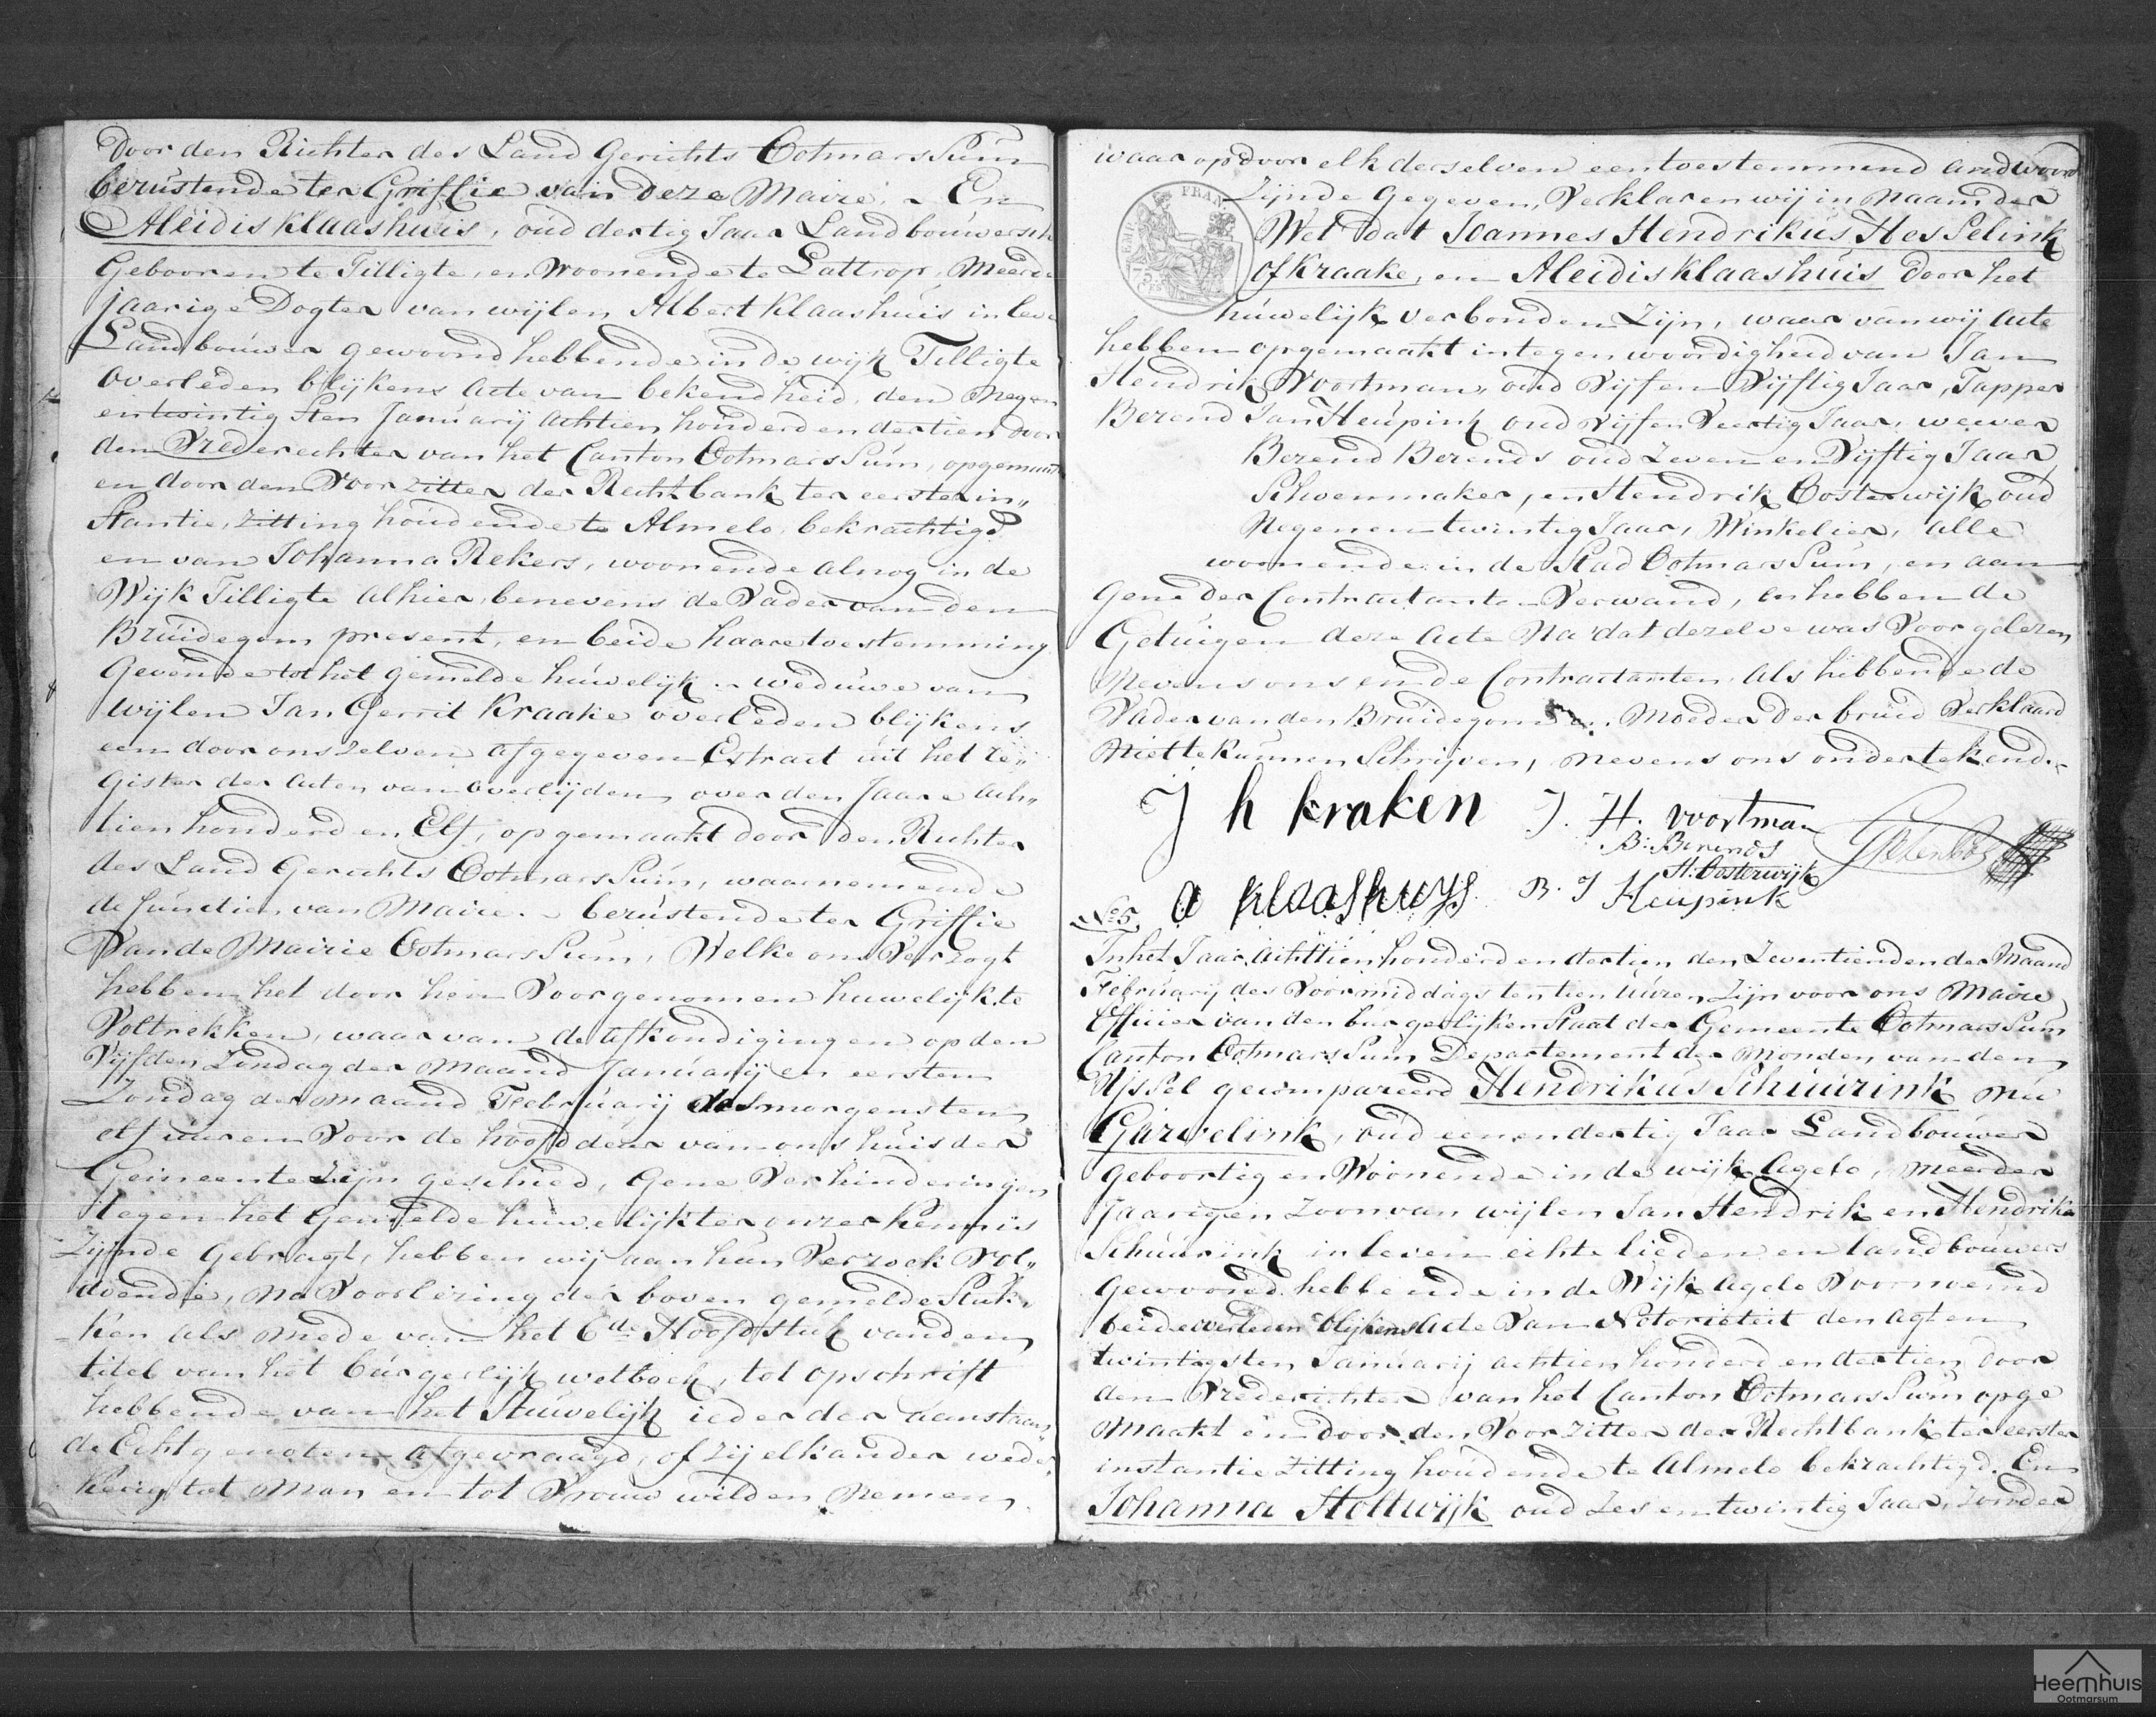 Door den Richter des Land Gerichts Ootmarssum
berustende ter Griffie van deze Mairie. - En
Aleidis Klaashuis, oud dertig Jaar Landbouwersch
Gebooren te Tilligte, en Woonende te Lattrop, Meerder
jaarige Dogter van wijlen Albert Klaashuis in leven
Landbouwer gewoond hebbende in de wijk Tilligte
Overleden blijkens Acte van bekendheid, den Negen
en twintig sten Januarij Achtien honderd en dertien door
den Vrederechter van het Canton Ootmarssum, opgemaakt
en door den Voorzitter der Rechtbank ter eerster in„
stantie, zitting houdende te Almelo, bekrachtigd
en van Johanna Rekers, woonende alnog in de
Wijk Tilligte alhier, benevens de Vader van den
Bruidegom present, en beide haare toestemming
Gevende tot het gemelde huwelijk - weduwe van
wijlen Jan Gerrit Kraake overleden blijkens
een door ons zelven afgegeven Extract uit het re„
gister der acten van overlijden over den Jaare ach„
tien honderd en Elf, opgemaakt door den Richter
des Land Gerichts Ootmarssum, waarnemende
de functien van Maire. - berustende ter Griffie
Van de Mairie Ootmarssum, Welke ons Verzogt
hebben het door hen Voorgenomen huwelijk te
Voltrekken, waar van de afkondigingen op den
Vijfden Zondag der Maand Januarij en eersten
Zondag der maand Februarij des morgens ten
elf uuren Voor de hoofd deur van ons huis der
Gemeente zijn geschied, Gene Verhinderingen
tegen het Gemelde huwelijk ter onzer kennis
Zijnde Gebragt, hebben wij aan hun Verzoek Vol„
doende, na Voorlezing der boven gemelde Stuk„
ken als mede van het 6de Hoofdstuk van den
titel van het burgerlijk wetboek, tot opschrift
hebbende van het Huwelijk ieder der aenstaen„
de Echtgenoten afgevraagd, of zij elkander weder„
keerig tot Man en tot Vrouw wilden Nemen,
waar op door elk derselven een toestemmend andwoord
EMP. FRAN.
75
Zijnde Gegeven, Verklaren wij in Naam der
Wet dat Joannes Hendrikus Hesselink
of Kraake, en Aleidis Klaashuis door het
huwelijk verbonden Zijn, waar van wij Acte
hebben opgemaakt in tegenwoordigheid van Jan
Hendrik Voortman, oud Vijf en Vijftig Jaar, Tapper
Berend Jan Heupink oud Vijf en Veertig Jaar, wever
Berend Berends oud Zeven en Vijftig Jaar
Schoenmaker, en Hendrik Oosterwijk oud
Negen en twintig Jaar, Winkelier, alle
woonende in de Stad Ootmarssum, en aan
Gene der Contractanten Verwand, en hebben de
Getuigen deze Acte Na dat dezelve was Voorgelezen
Nevens ons en de Contractanten als hebbende de
Vader van den Bruidegom en Moeder der bruid Verklaard
Niet te kunnen Schrijven, Nevens ons ondertekend.
J h kraken J. H. voortman
B: Berends
H: Oosterwijk
a klaashuys B. J Heupink
No 5
In het Jaar Achttien honderd en dertien den Zeventienden der Maand
Februarij des Voormiddags ten tien uuren Zijn voor ons Maire
Officier van den burgerlijken Staat der Gemeente Ootmarssum
Canton Ootmarssum Departement der Monden van den
IJssel gecompareerd Hendrikus Schuurink nu
Garvelink, oud een en dertig Jaar Landbouwer
Geboortig en Woonende in de wijk Agelo, Meerder
Jaarigen Zoon van wijlen Jan Hendrik en Hendrika
Schuurink in leven echte lieden en landbouwers
Gewoond hebbende in de Wijk Agelo Voornoemd
beide overleden blijkens Acte Van Notorieteit den agt en
twintigsten Januarij achtien honderd en dertien door
den Vrederichter van het Canton Ootmarssum opge
maakt en door den Voorzitter der Rechtbank ter eerster
instantie Zitting houdende te Almelo bekrachtigd. En
Johanna Holtwijk oud zes en twintig Jaar, Zonder
Heemhuis
Ootmarsum